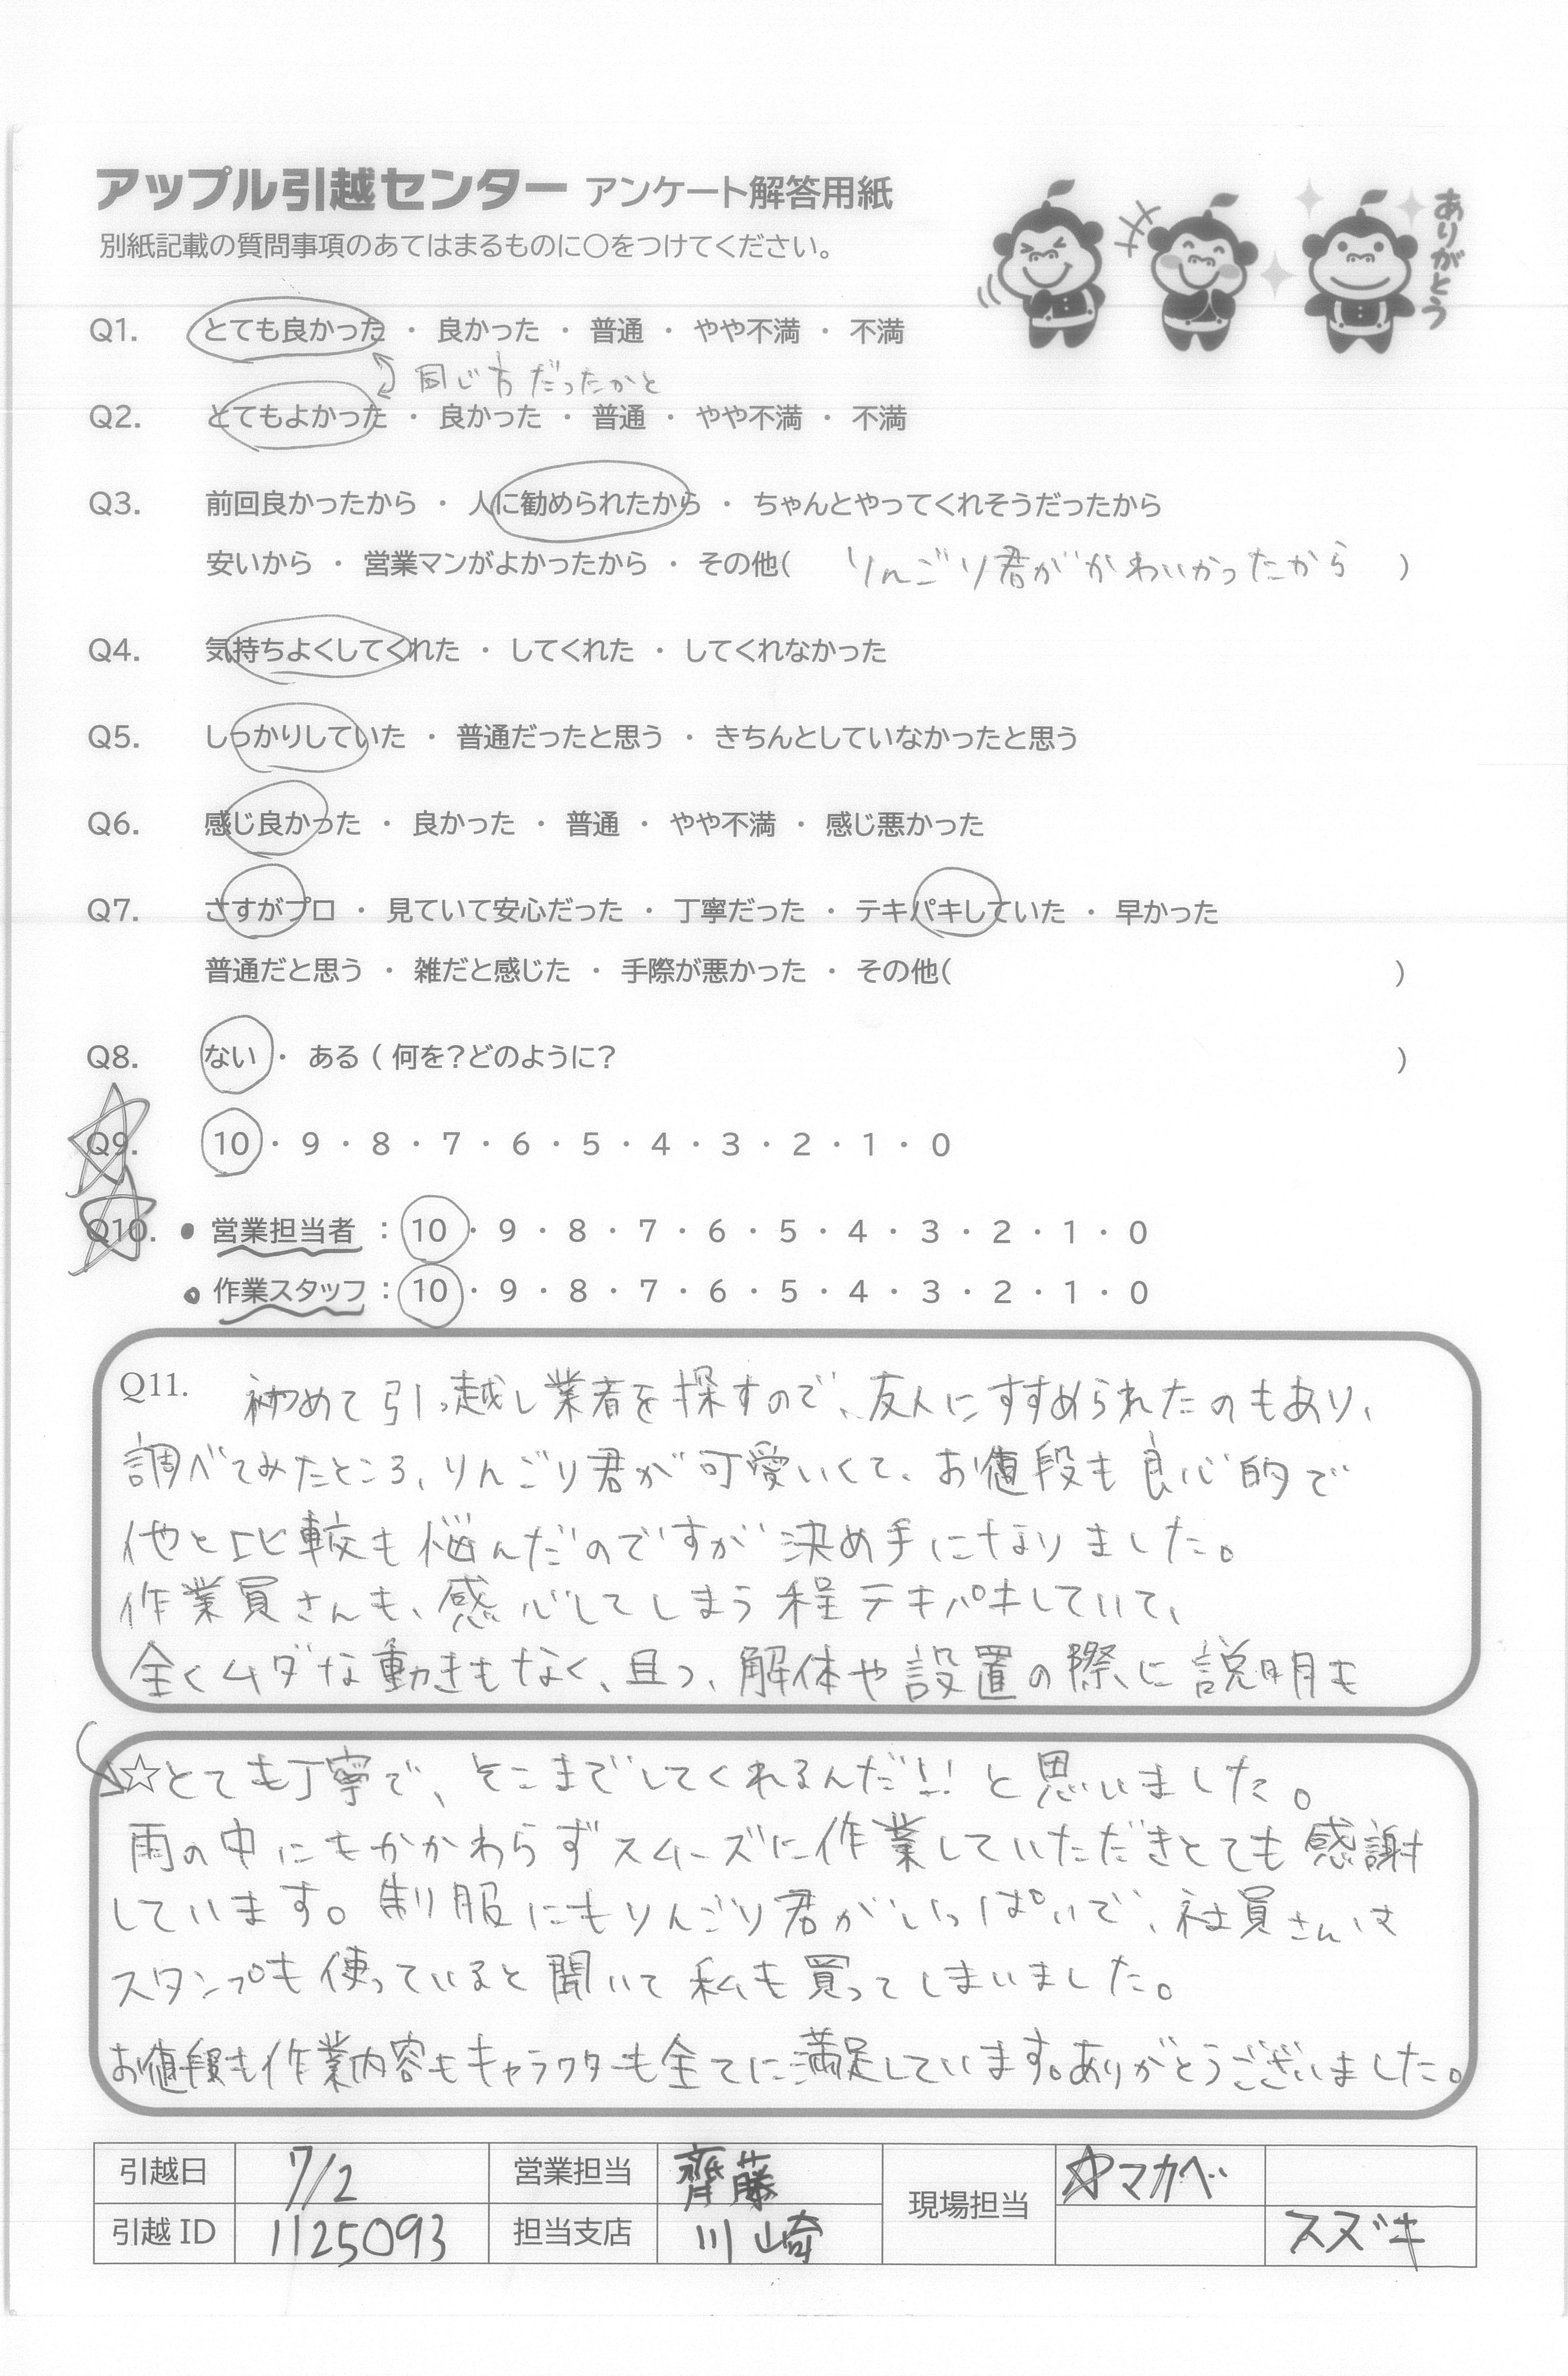 アップル引越センター アンケート解答用紙
別紙記載の質問事項のあてはまるものに〇をつけてください。
ありがとう
Q1. とても良かった ・ 良かった ・ 普通 ・ やや不満 ・ 不満
同じ方だったかと
Q2. とてもよかった ・ 良かった ・ 普通 ・ やや不満 ・ 不満
Q3. 前回良かったから ・ 人に勧められたから ・ ちゃんとやってくれそうだったから
安いから ・ 営業マンがよかったから ・ その他( りんごり君がかわいかったから )
Q4. 気持ちよくしてくれた ・ してくれた ・ してくれなかった
Q5. しっかりしていた ・ 普通だったと思う ・ きちんとしていなかったと思う
Q6. 感じ良かった ・ 良かった ・ 普通 ・ やや不満 ・ 感じ悪かった
Q7. さすがプロ ・ 見ていて安心だった ・ 丁寧だった ・ テキパキしていた ・ 早かった
普通だと思う ・ 雑だと感じた ・ 手際が悪かった ・ その他( )
Q8. ない ・ ある ( 何を?どのように? )
Q9. 10 ・ 9 ・ 8 ・ 7 ・ 6 ・ 5 ・ 4 ・ 3 ・ 2 ・ 1 ・ 0
Q10. ● 営業担当者 : 10 ・ 9 ・ 8 ・ 7 ・ 6 ・ 5 ・ 4 ・ 3 ・ 2 ・ 1 ・ 0
● 作業スタッフ : 10 ・ 9 ・ 8 ・ 7 ・ 6 ・ 5 ・ 4 ・ 3 ・ 2 ・ 1 ・ 0
Q11. 初めて引っ越し業者を探すので、友人にすすめられたのもあり、
調べてみたところ、りんごり君が可愛いくて、お値段も良心的で
他と比較も悩んだのですが決め手になりました。
作業員さんも、感心してしまう程テキパキしていて、
全くムダな動きもなく、且つ、解体や設置の際に説明も
☆とても丁寧で、そこまでしてくれるんだ!! と思いました。
雨の中にもかかわらずスムーズに作業していただきとても感謝
しています。制服にもりんごり君がいっぱいで、社員さんは
スタンプも使っていると聞いて私も買ってしまいました。
お値段も作業内容もキャラクターも全てに満足しています。ありがとうございました。
引越日 7/2 営業担当 齊藤 現場担当 ☆マカベ
引越 ID 1125093 担当支店 川崎 スズキ